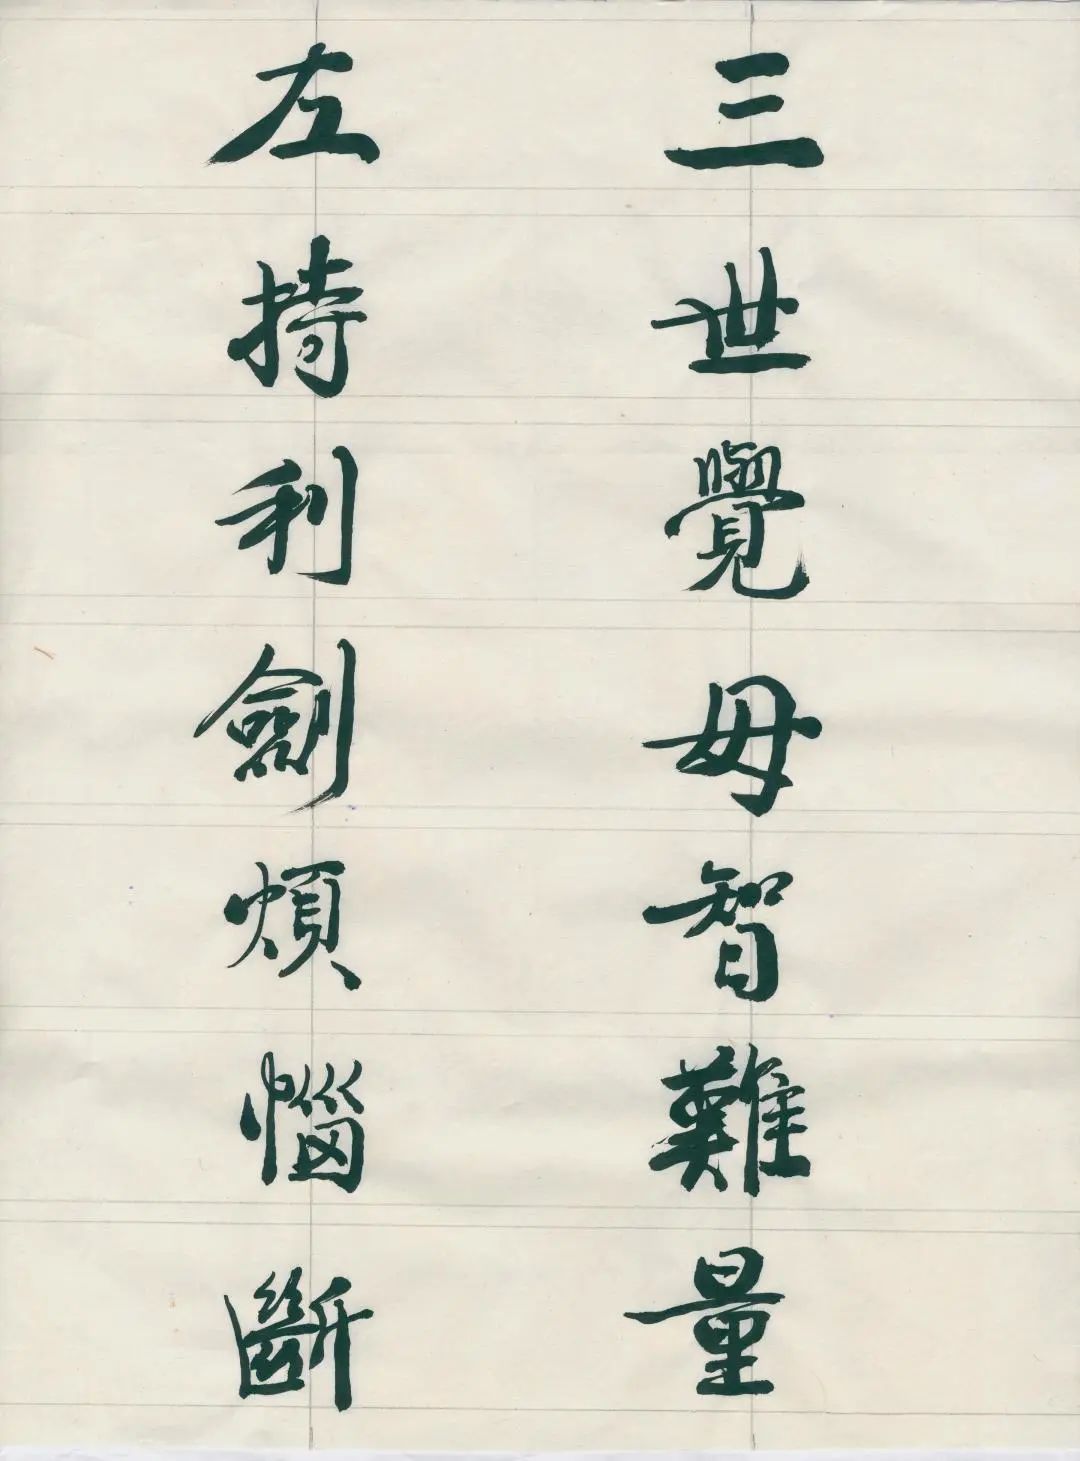 三世覺母智難量
左持利劍煩惱斷